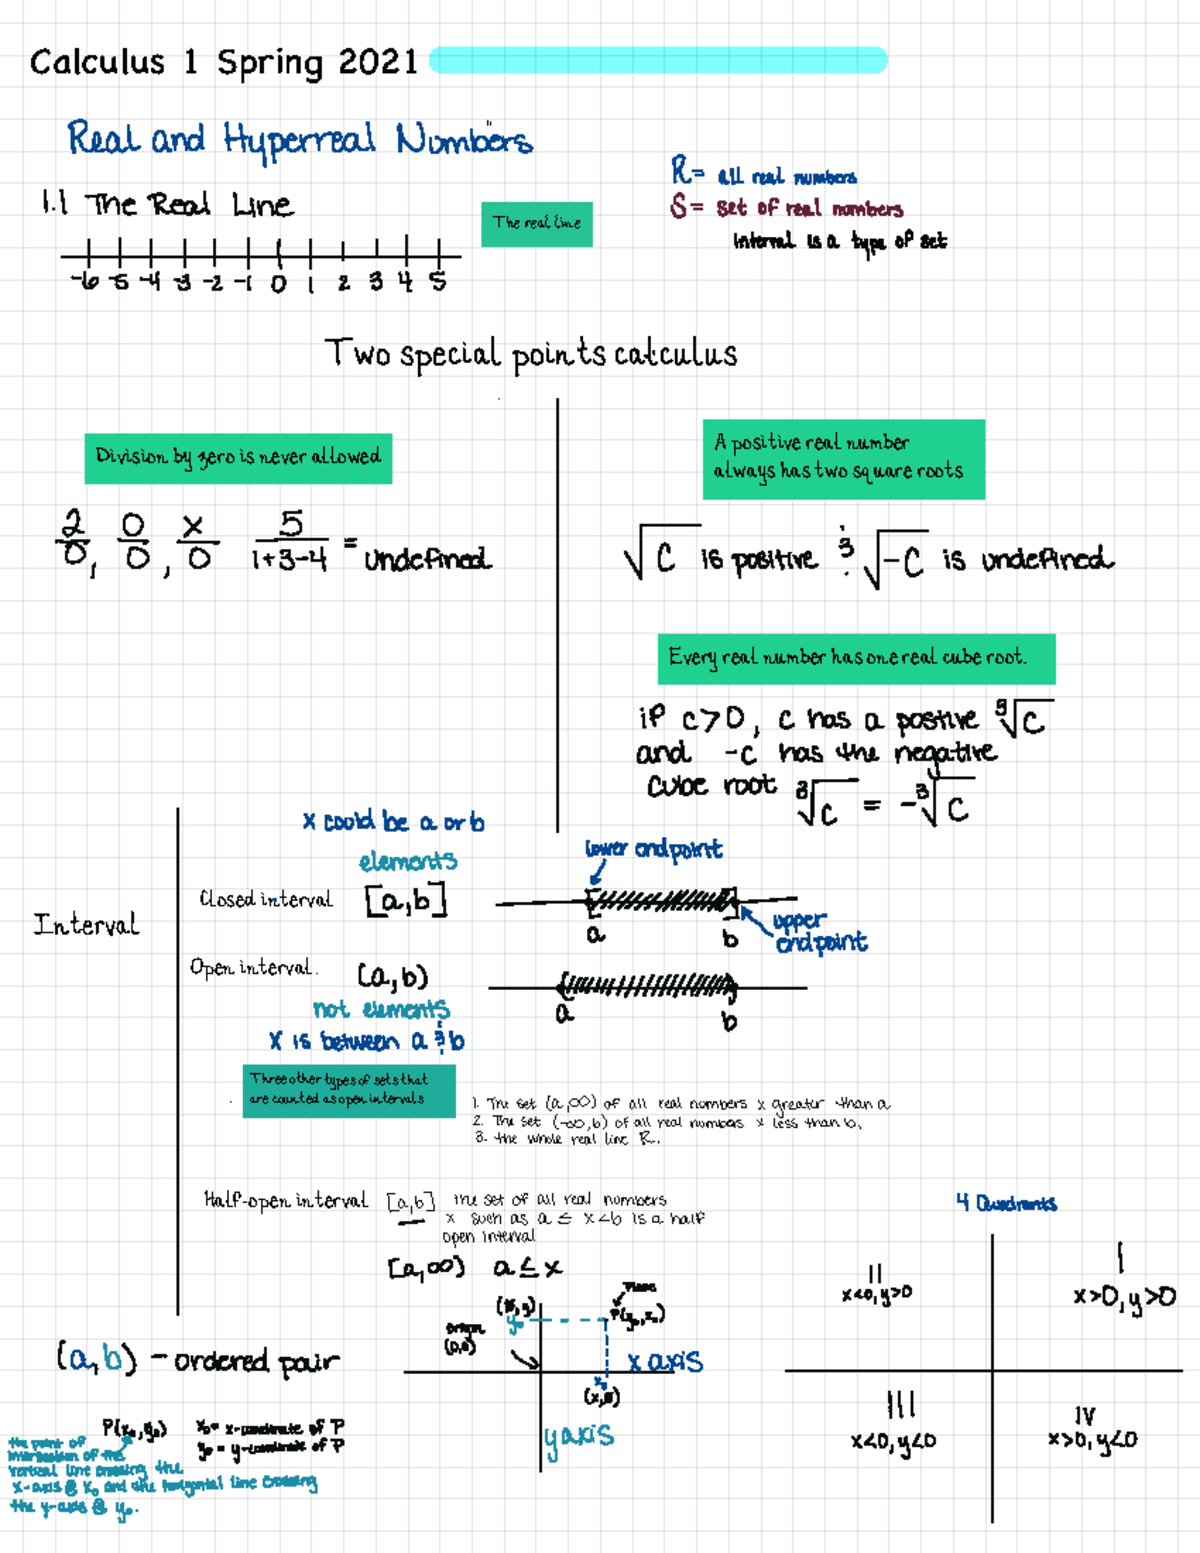 Calculus 1 Spring 2021
Real and Hyperreal Numbers
R = all real numbers
S = set of real numbers
Interval is a type of set
1.1 The Real Line
The real line
-6 -5 -4 -3 -2 -1 0 1 2 3 4 5
Two special points calculus
Division by zero is never allowed
2/0, 0/0, x/0 5/1+3-4 = undefined
A positive real number
always has two square roots
√C is positive & √-C is undefined
Every real number has one real cube root.
if c>0, c has a postive ∛C
and -c has the negative
cube root ∛C = -∛C
Interval
x could be a or b
elements
Closed interval [a,b]
lower endpoint
a b
upper
endpoint
Open interval. (a,b)
a b
not elements
x is between a & b
Three other types of sets that
are counted as open intervals
1. The set (a,∞) of all real numbers x greater than a
2. The set (-∞,b) of all real numbers x less than b.
3. the whole real line R.
Half-open interval [a,b] the set of all real numbers
x such as a ≤ x<b is a half
open interval
[a,∞) a≤x
4 Quadrants
II
x<0, y>0
I
x>0, y>0
III
x<0, y<0
IV
x>0, y<0
Origin
(0,0)
y₀
x axis
x₀
y axis
(a,b) - ordered pair
P(x₀,y₀)
x₀= x-coordinate of P
y₀ = y-coordinate of P
the point of
intersection of the
vertical line crossing the
x-axis @ x₀ and the horizontal line crossing
the y-axis @ y₀.